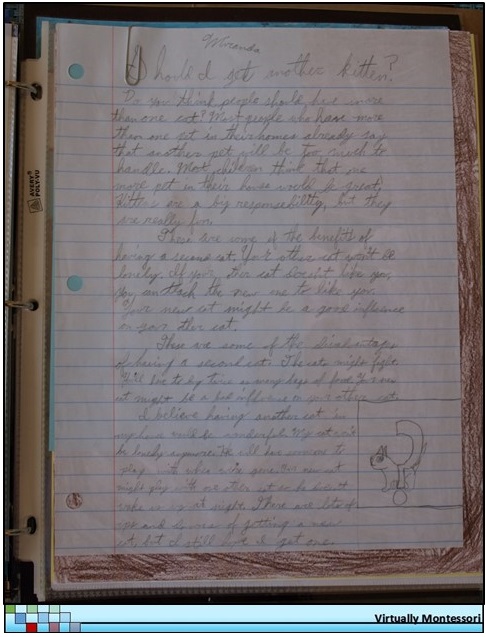 Miranda
Should I get another kitten?
Do you think people should have more
than one cat? Most people who have more
than one pet in their homes already say
that another pet will be too much to
handle. Most children think that one
more pet in their house would be great,
are a big responsibility, but they
are really fun.
These are some of the benefits of
having a second cat. Your other cat won't be
lonely. If your other cat doesn't like you,
you can teach the new one to like you.
Your new cat might be a good influence
on your other cat.
These are some of the
of having a second cat. The cats might fight.
have to buy twice as many bags of food. Your new
cat might be a bad influence on your other cat.
I believe having another cat in
my house would be wonderful. My cat won't
be lonely anymore. He will have someone to
play with when we're gone. Our new cat
might play with our other cat so he doesn't
wake us up at night. There are lots of
and of getting a new
cat, but I still hope I get one.
AVERY
POLY-VU
Virtually Montessori